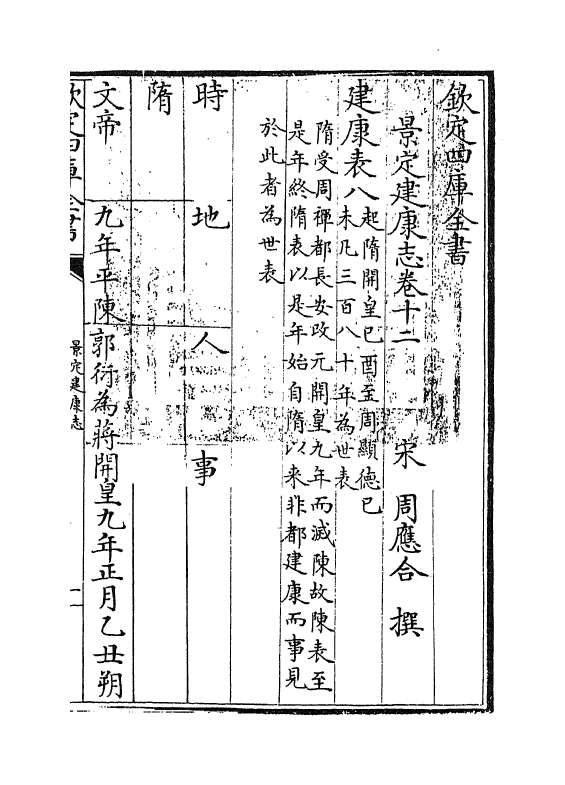 欽定四庫全書
景定建康志卷十二
宋 周應合 撰
建康表八
起隋開皇已酉至周顯德已
未凡三百八十年為世表
隋受周禪都長安改元開皇九年而滅陳故陳表至
是年終隋表以是年始自隋以来非都建康而事見
於此者為世表
時 地 人 事
隋
文帝 九年平陳 郭衍為蔣 開皇九年正月乙丑朔
欽定四庫全書
景定建康志